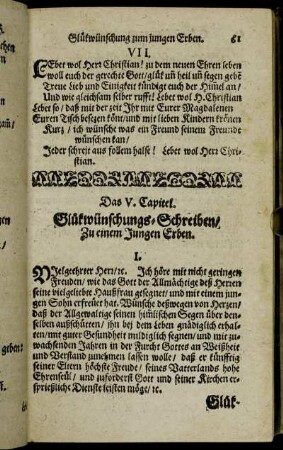 Glükwünschung zum jungen Erben. 61
VII.
LEbet wol Herr Christian! zu dem neuen Ehren leben
woll euch der gerechte Gott/ glük uñ heil uñ segen gebẽ
Treue Lieb und Einigkeit kündigt euch der Him̃el an/
Und wie gleichsam selber rufft! Lebet wol H. Christian
Lebet so/ daß mit der zeit Ihr mit Eurer Magdalenen
Euren Tisch besegen könt/ und mit lieben Kindern krönen
Kurtz/ ich wünsche was ein Freund seinem Freunde
wünschen kan/
Jeder schreit aus follem halse! Lebet wol Herr Chri-
stian.
Das V. Capitel.
Glükwünschungs-Schreiben/
Zu einem Jungen Erben.
I.
VIelgeehrter Herr/ ꝛc. Ich höre mit nicht geringen
Freuden/ wie das Gott der Allmächtige deß Herren
seine vielgeliebte Haußfrau gesegnet/ und mit einem jun-
gen Sohn erfreuet hat. Wünsche deßwegen von Hertzen/
daß der Allgewaltige seinen him̃lischen Segen über den-
selben außschütten/ ihn bey dem Leben gnädiglich erhal-
ten/ mit guter Gesundheit mildiglich segnen/ und mit zu-
wachsenden Jahren in der Furcht Gottes an Weißheit
und Verstand zunehmen lassen wolle/ daß er künfftig
seiner Eltern höchste Freude/ seines Vatterlands hohe
Ehrenseul/ und zuforderst Gott und seiner Kirchen er-
sprießliche Dienste leisten möge/ ꝛc.
Glük-